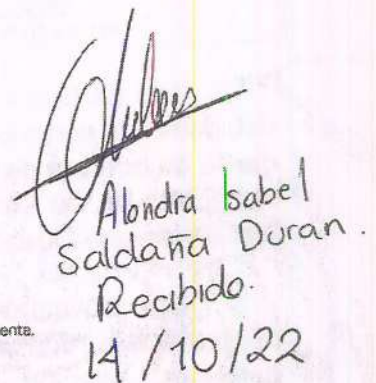 Alondra Isabel
Saldaña Duran.
Recibido.
enta.
14/10/22